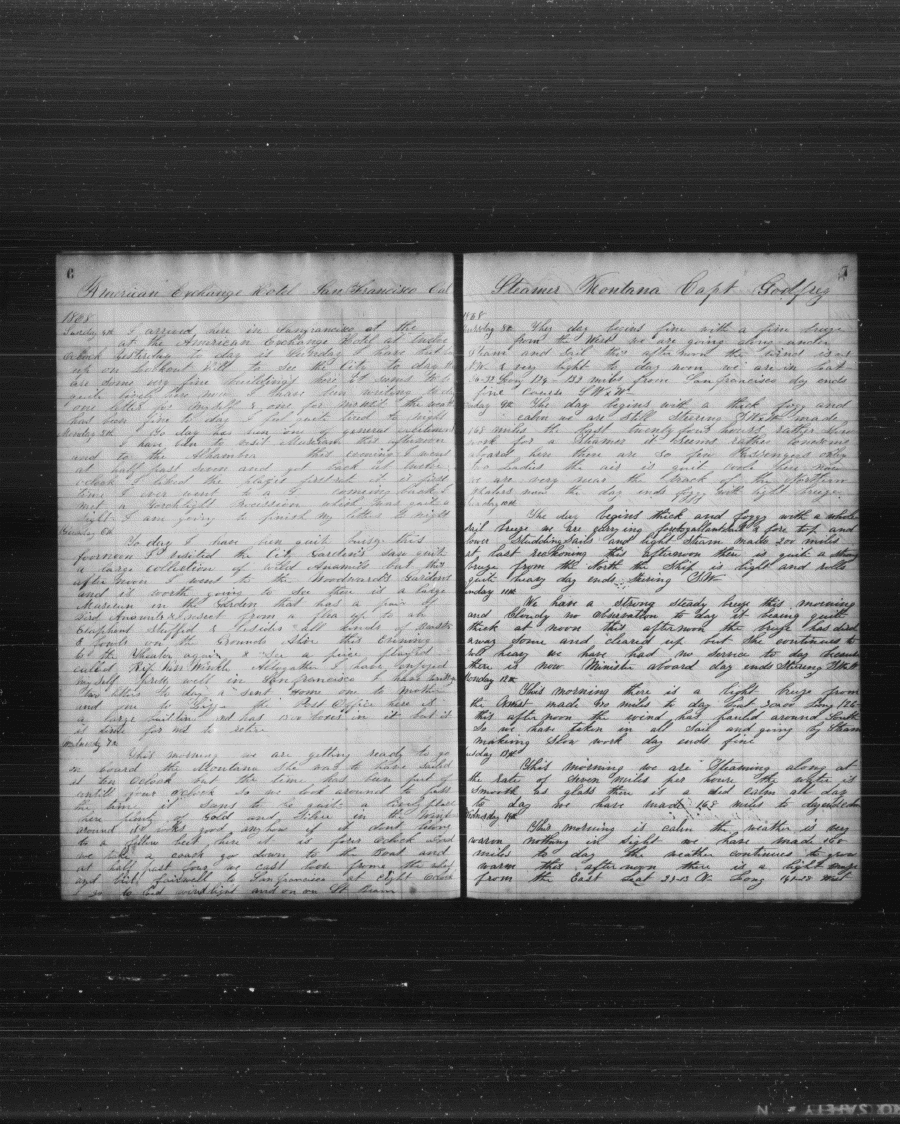 6
American Exchange Hotel San Francisco Cal
1868
Sunday I arrived here in Sanfrancisco at the
at the American Exchange Hotel at twelve
Oclock Yesterday to day is Sunday I have been
up on Lookout Hill to see the City to day
are some very fine buildings here it seems to be
quite large here now I have been writing to day
one letter for myself & one for the weather
has been fine to day I feel quite tired to night
Monday To day has been one of general excitement
I have ben to visit Museum this afternoon
and to the Alhambra this evening I went
at half past seven and got back at twelve
oclock I liked the plays firstrate it is first
time I ever went to a coming back I
met a Torchlight Procession which was quite a
sight I am going to finish my letter to night
To day I have ben quite busy this
forenoon I visited the City Gardens saw quite
a large collection of wild Anamils but this
after noon I went to the Woodwards Gardens
and it worth going to see there is a large
Museum in the Garden that has a pair of
Bird Anamil & Insect from a flea up to an
Elaphant Stuffed & besides all kinds of Beasts
& fowls on the Grounds Alive this Evening
to the Theater again & see a piece played
called Rip Van Winkle Altogather I have enjoyed
myself Pretty well in Sanfrancisco I have
two letters to day & sent home one to mother
and one to Lizzy the Post Office here is
a large building and has boxes in it but it
is time for me to retire
This morning we are getting ready to go
on board the Montana She was to have sailed
at ten Oclock but the time has ben put of
untill four oclock so we look around to pass
the time it seems to be quite a lively place
here plenty of Gold and Silver in the
around it looks good anyhow if it dont
to a fellow but here it is four oclock and
we take a coach go down to the Boat and
at half past four we cast loose from the ship
and bid farewell to Sanfrancisco at eight Oclock
wind light and on on St Beam
7
Steamer Montana Capt Godfrey
1868
Thursday 8th This day begins fine with a fine breeze
from the West we are going along under
Steam and Sail this afternoon the wind is at
N.W. & very light to day noon we are in Lat
miles from Sanfrancisco day ends
fine course S.W.W.
9th This day begins with a thick fogg and
calm we are still Steering made
168 miles the last twenty four hours rather slow
work for a Steamer it seems rather lonesome
aboard here there are so few Passengers only
two Ladies the air is quite cool here now
we are very near the track of the Northern
Whalers now the day ends foggy with light breeze
The day begins thick and fogg with a
Sail breeze we are carrying foretopgallantsail a fore top and
lower Studding Sails and light Steam made 200 miles
at last reckoning this afternoon there is quite a strong
breeze from the North the Ship is light and rolls
quite heavy day ends Steering S.W.
Sunday 11th
We have a Strong steady breeze this morning
and Cloudy no observation to day it being quite
thick at noon this afternoon the breeze has died
away some and cleared up but She continues to
roll heavy we have had no service to day because
there is now Minister aboard day ends Steering S.W.W.
Monday 12th
This morning there is a light breeze from
the made miles to day Lat Long
this afternoon the wind has hauld around South
So we have taken in all Sail and going by Steam
makeing Slow work day ends fine
Tuesday 13th
This morning we are Steaming along at
the rate of Seven miles per houre the water is
Smooth as glass there is a ded calm all day
to day we have made 168 miles to day
Wednesday 14th
This morning is calm the weather is very
warm nothing in sight we have made 160
miles to day the weather continues to grow
warm this afternoon there is a light breeze
from the East Lat 23-13 N. Long West